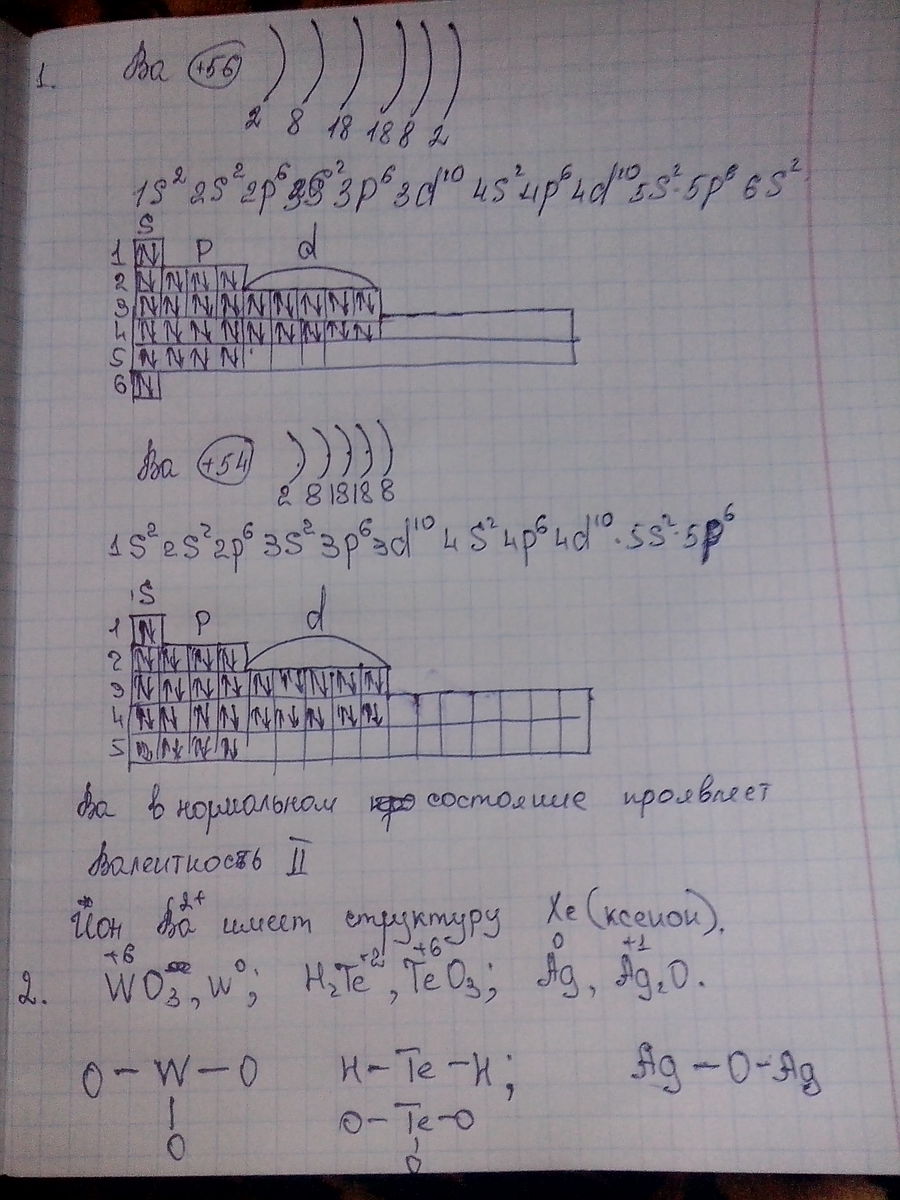 1. Ba +56
2 8 18 18 8 2
1S² 2S² 2p⁶ 3S² 3p⁶ 3d¹⁰ 4S² 4p⁶ 4d¹⁰ 5S² 5p⁶ 6S²
S
1 ↑↓ p d
2 ↑↓ ↑↓ ↑↓ ↑↓
3 ↑↓ ↑↓ ↑↓ ↑↓ ↑↓ ↑↓ ↑↓ ↑↓ ↑↓
4 ↑↓ ↑↓ ↑↓ ↑↓ ↑↓ ↑↓ ↑↓ ↑↓ ↑↓
5 ↑↓ ↑↓ ↑↓ ↑↓
6 ↑↓
Ba +54
2 8 18 18 8
1S² 2S² 2p⁶ 3S² 3p⁶ 3d¹⁰ 4S² 4p⁶ 4d¹⁰ · 5S² · 5p⁶
S
1 ↑↓ p d
2 ↑↓ ↑↓ ↑↓ ↑↓
3 ↑↓ ↑↓ ↑↓ ↑↓ ↑↓ ↑↓ ↑↓ ↑↓ ↑↓
4 ↑↓ ↑↓ ↑↓ ↑↓ ↑↓ ↑↓ ↑↓ ↑↓ ↑↓
5 ↑↓ ↑↓ ↑↓ ↑↓
Ba в нормальном состояние проявляет
Валентность II
Йон Ba²⁺ имеет структуру Xe (ксенон).
+6 -2 +6 0 +1
2. WO₃, W⁰; H₂Te, TeO₃; Ag, Ag₂O.
O – W – O H – Te – H; Ag – O – Ag
| O – Te – O
O |
O